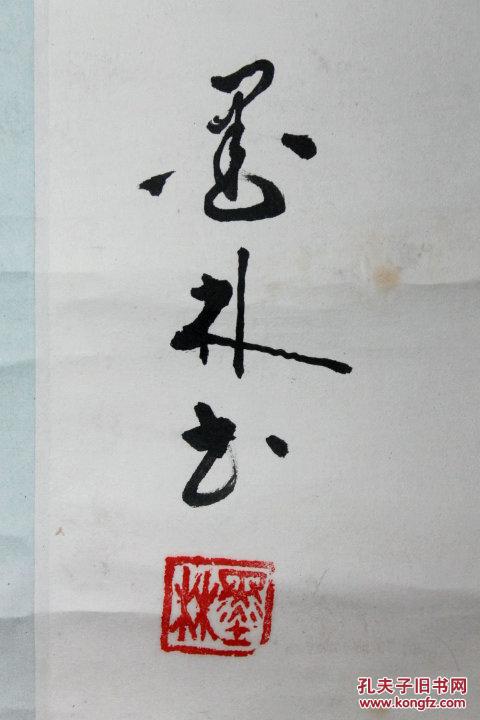 墨林书
墨林
孔夫子旧书网
www.kongfz.com